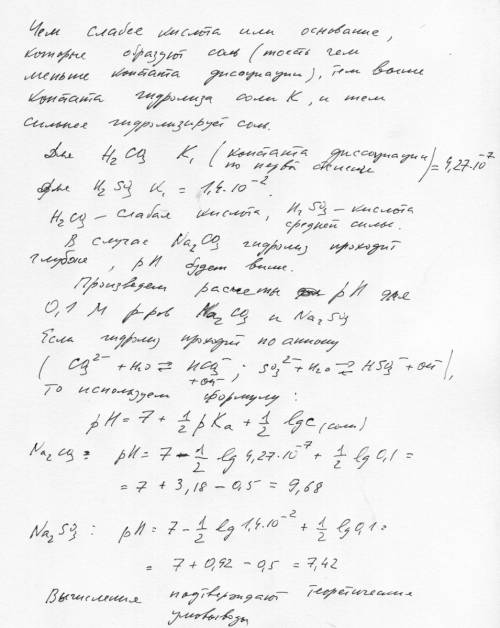 Чем слабее кислота или основание,
которые образуют соль (тость чем
меньше контата дисоциации), тем выше
контата гидролиза соли K, и тем
сильнее гидролизирует соль.
Для H₂CO₃ K₁ (контата диссоциации по первой ступени) = 4,27·10⁻⁷
Для H₂SO₃ K₁ = 1,4·10⁻².
H₂CO₃ – слабая кислота, H₂SO₃ – кислота
средней силы.
В случае Na₂CO₃ гидролиз проходит
глубже, pH будет выше.
Произведем расчеты pH для
0,1 М р-ров Na₂CO₃ и Na₂SO₃
Если гидролиз проходит по аниону
(CO₃²⁻ + H₂O ⇄ HCO₃⁻ + OH⁻; SO₃²⁻ + H₂O ⇄ HSO₃⁻ + OH⁻),
то используем формулу:
pH = 7 + 1/2 pKa + 1/2 lgC(соли)
Na₂CO₃: pH = 7 - 1/2 lg 4,27·10⁻⁷ + 1/2 lg 0,1 =
= 7 + 3,18 – 0,5 = 9,68
Na₂SO₃: pH = 7 - 1/2 lg 1,4·10⁻² + 1/2 lg 0,1 =
= 7 + 0,92 – 0,5 = 7,42
Вычисления подтверждают теоретические
умовыводы